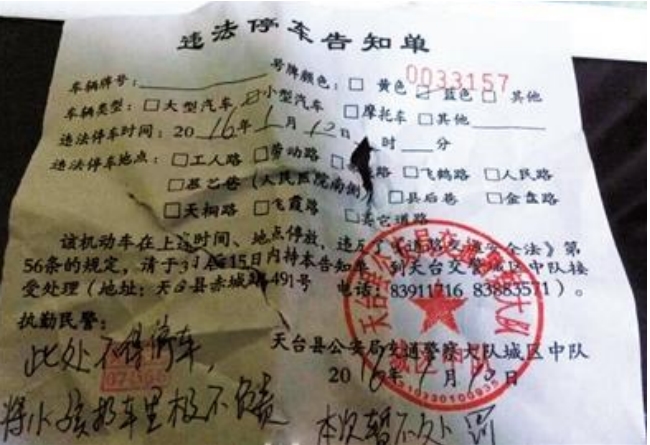 违法停车告知单
0033157
车辆牌号： 号牌颜色：□ 黄色 ☑ 蓝色 □ 其他
车辆类型：□大型汽车 ☑小型汽车 □摩托车 □其他
违法停车时间：2016年1月12日 时 分
违法停车地点：□工人路 □劳动路 路 □飞鹤路 □人民路
巷（人民医院南侧） □县后巷 □金盘路
□天桐路 □飞霞路 □其它道路
该机动车在上述时间、地点停放，违反了《道路交通安全法》第
56条的规定，请于3日后15日内持本告知单，到天台交警城区中队接
受处理（地址：天台县赤城路491号 电话：83911716 83883571）。
执勤民警：
此处不得停车，
天台县公安局交通警察大队城区中队
2016年1月12日
将小孩扔车里极不负责
本次暂不处罚
天台县公安局交通警察大队
城区中队